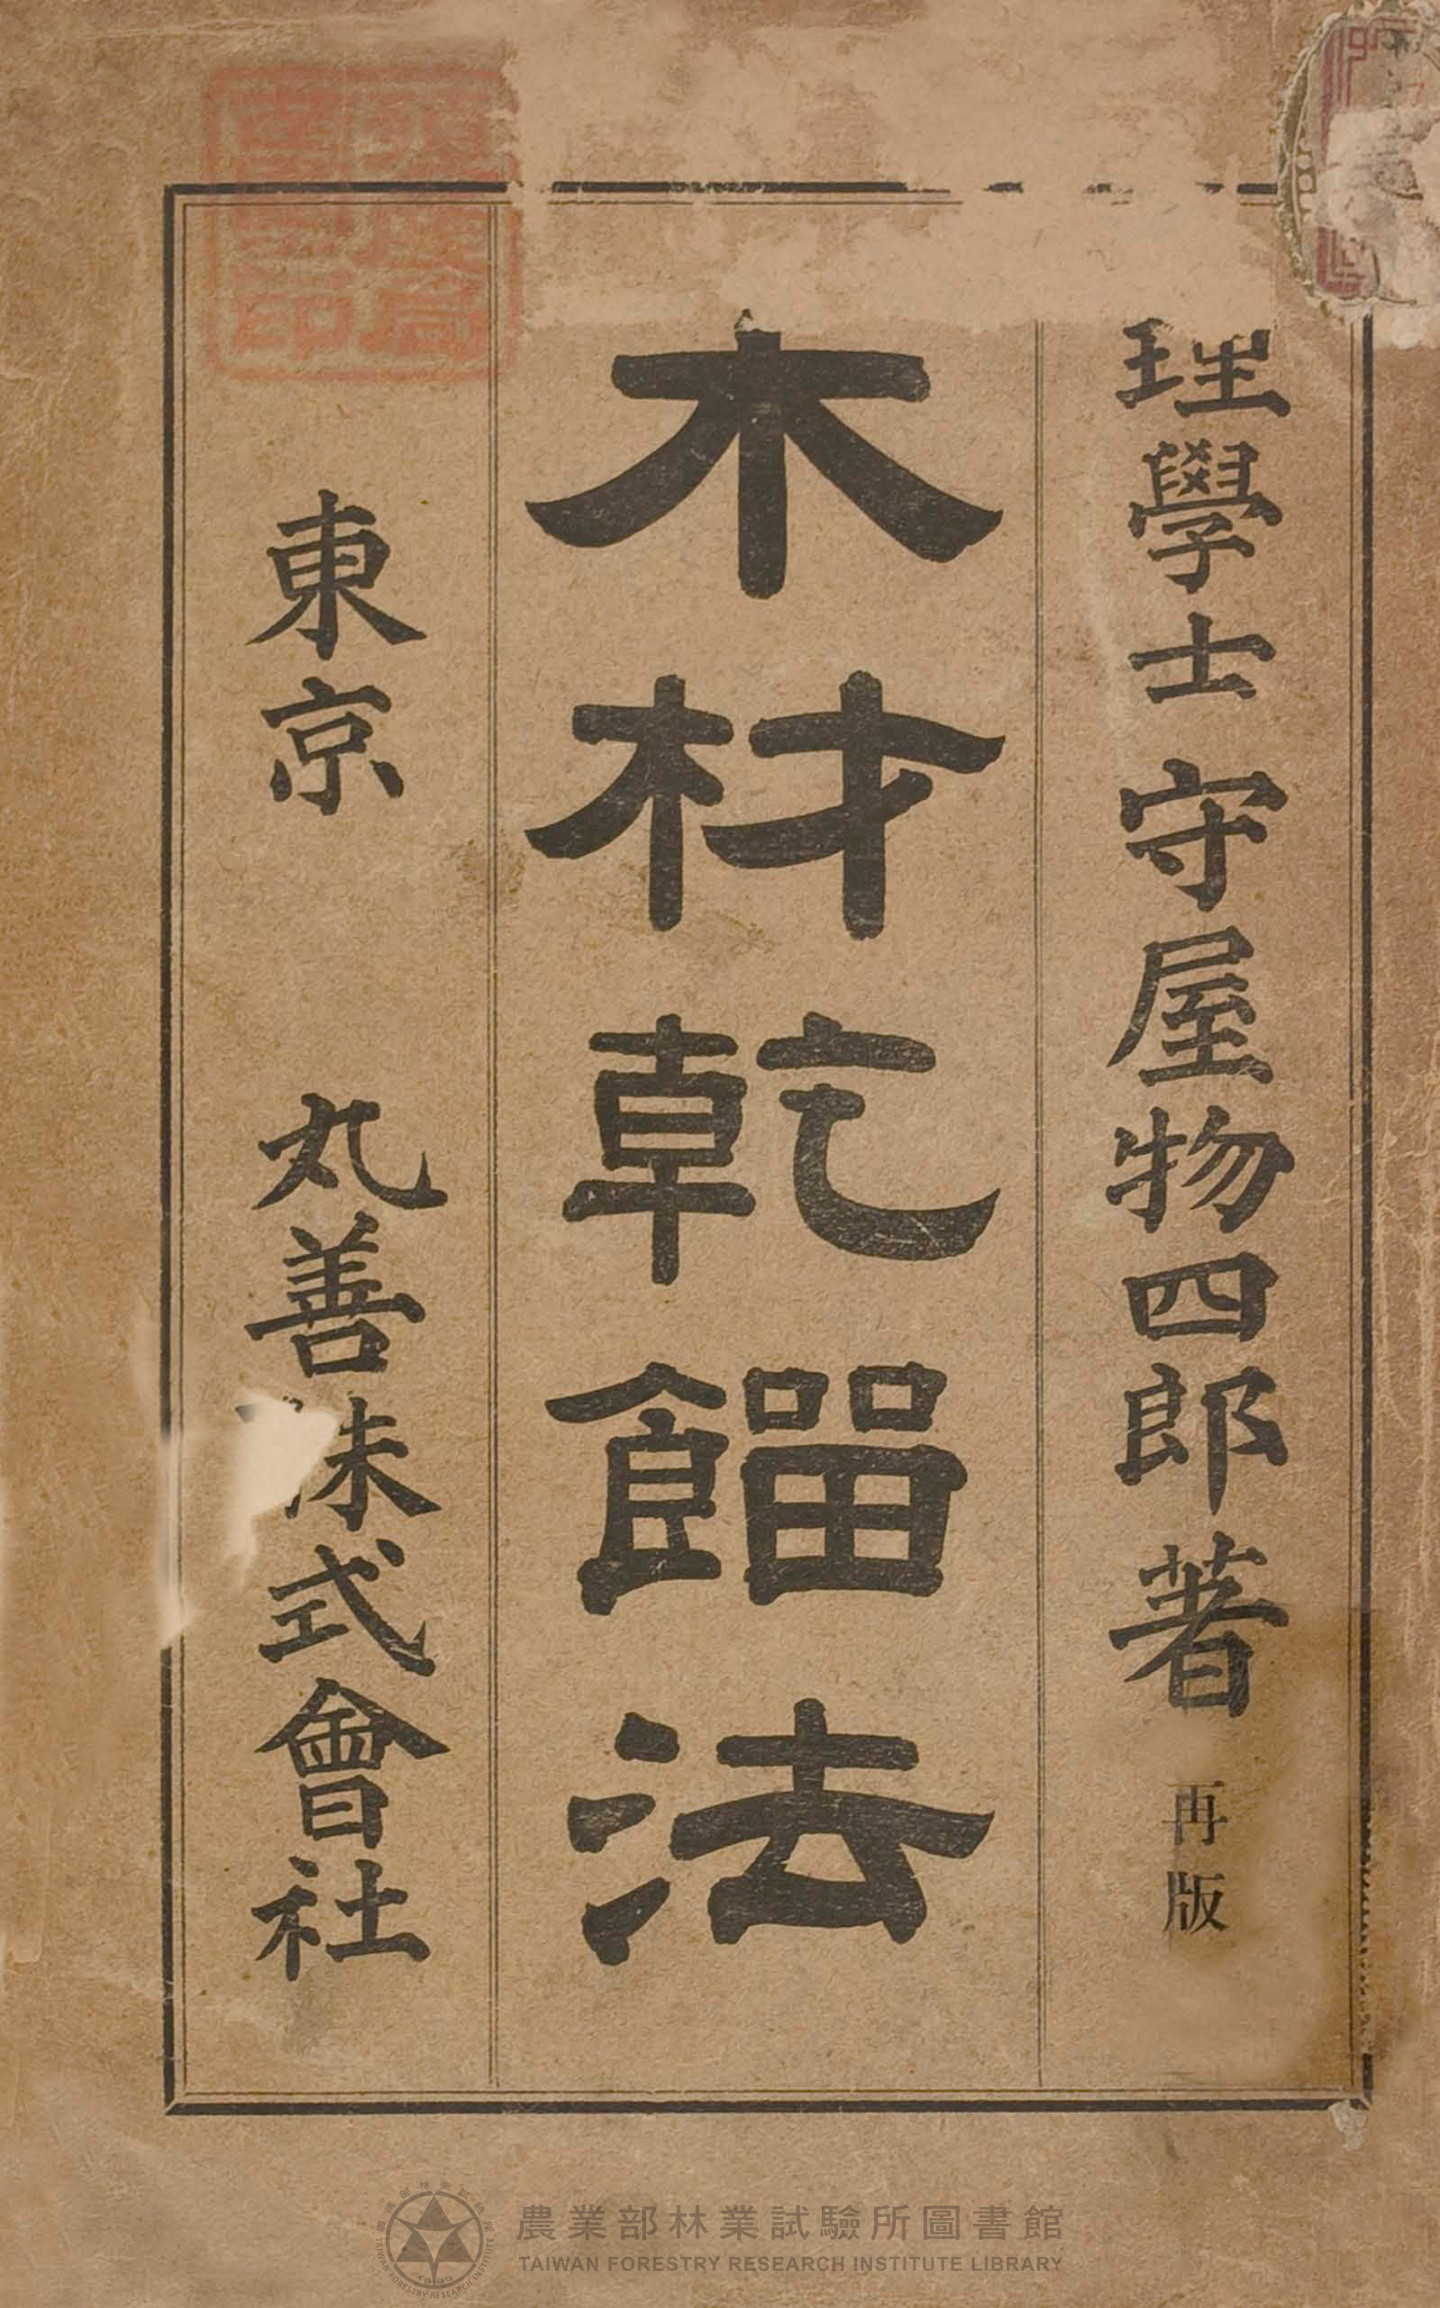 理學士 守屋物四郎著 再版
木材乾餾法
東京 丸善株式會社
農業部林業試驗所圖書館
TAIWAN FORESTRY RESEARCH INSTITUTE LIBRARY